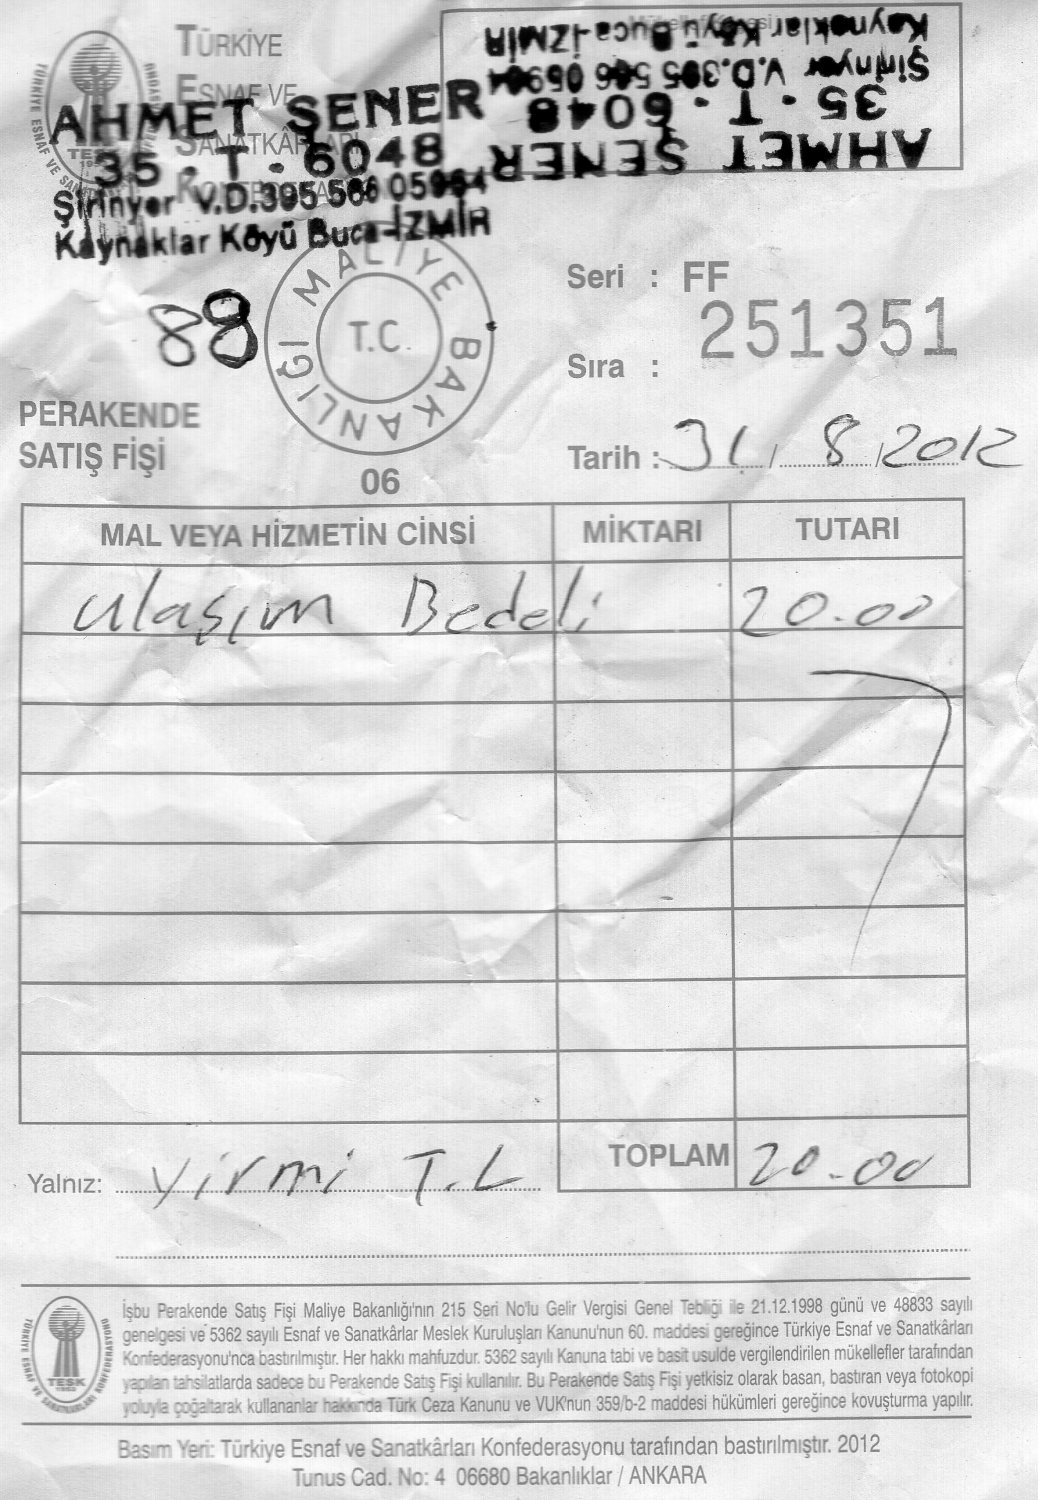 TÜRKİYE
ESNAF VE
SANATKÂRLARI
AHMET ŞENER
35 . T . 6048
Şirinyer V.D.395 566 05964
Kaynaklar Köyü Buca-İZMİR
AHMET ŞENER
35 . T . 6048
Şirinyer V.D.395 566 05964
Kaynaklar Köyü Buca-İZMİR
88
T.C. MALİYE BAKANLIĞI
06
Seri : FF
251351
Sıra :
PERAKENDE
SATIŞ FİŞİ
Tarih : 31 / 8 / 2012
MAL VEYA HİZMETİN CİNSİ MİKTARI TUTARI
Ulaşım Bedeli 20.00
TOPLAM 20.00
Yalnız: Yirmi T.L
TÜRKİYE ESNAF VE SANATKARLARI KONFEDERASYONU
TESK
İşbu Perakende Satış Fişi Maliye Bakanlığı'nın 215 Seri No'lu Gelir Vergisi Genel Tebliği ile 21.12.1998 günü ve 48833 sayılı
genelgesi ve 5362 sayılı Esnaf ve Sanatkârlar Meslek Kuruluşları Kanunu'nun 60. maddesi gereğince Türkiye Esnaf ve Sanatkârları
Konfederasyonu'nca bastırılmıştır. Her hakkı mahfuzdur. 5362 sayılı Kanuna tabi ve basit usulde vergilendirilen mükellefler tarafından
yapılan tahsilatlarda sadece bu Perakende Satış Fişi kullanılır. Bu Perakende Satış Fişi yetkisiz olarak basan, bastıran veya fotokopi
yoluyla çoğaltarak kullananlar hakkında Türk Ceza Kanunu ve VUK'nun 359/b-2 maddesi hükümleri gereğince kovuşturma yapılır.
Basım Yeri: Türkiye Esnaf ve Sanatkârları Konfederasyonu tarafından bastırılmıştır. 2012
Tunus Cad. No: 4 06680 Bakanlıklar / ANKARA